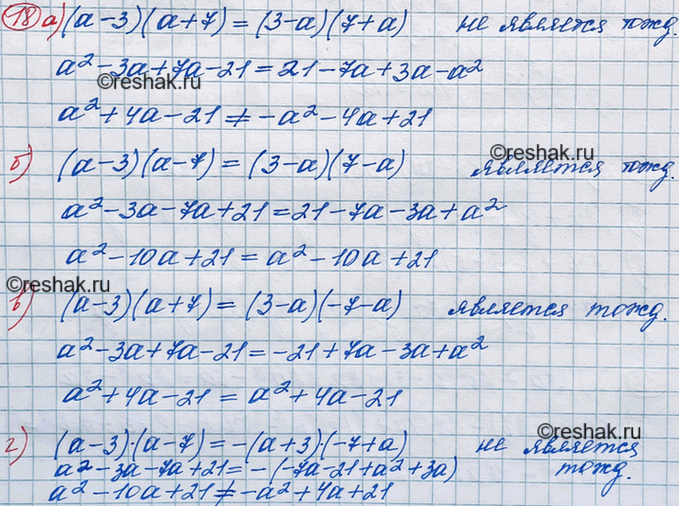 18 а) (a-3)(a+7)=(3-a)(7+a) не является тожд.
a²-3a+7a-21=21-7a+3a-a²
©reshak.ru
a²+4a-21≠-a²-4a+21
©reshak.ru
б) (a-3)(a-7)=(3-a)(7-a) является тожд.
a²-3a-7a+21=21-7a-3a+a²
a²-10a+21=a²-10a+21
©reshak.ru
в) (a-3)(a+7)=(3-a)(-7-a) является тожд.
a²-3a+7a-21=-21+7a-3a+a²
a²+4a-21=a²+4a-21
©reshak.ru
г) (a-3)·(a-7)=-(a+3)·(-7+a) не является
a²-3a-7a+21=-(-7a-21+a²+3a) тожд.
a²-10a+21≠-a²+4a+21